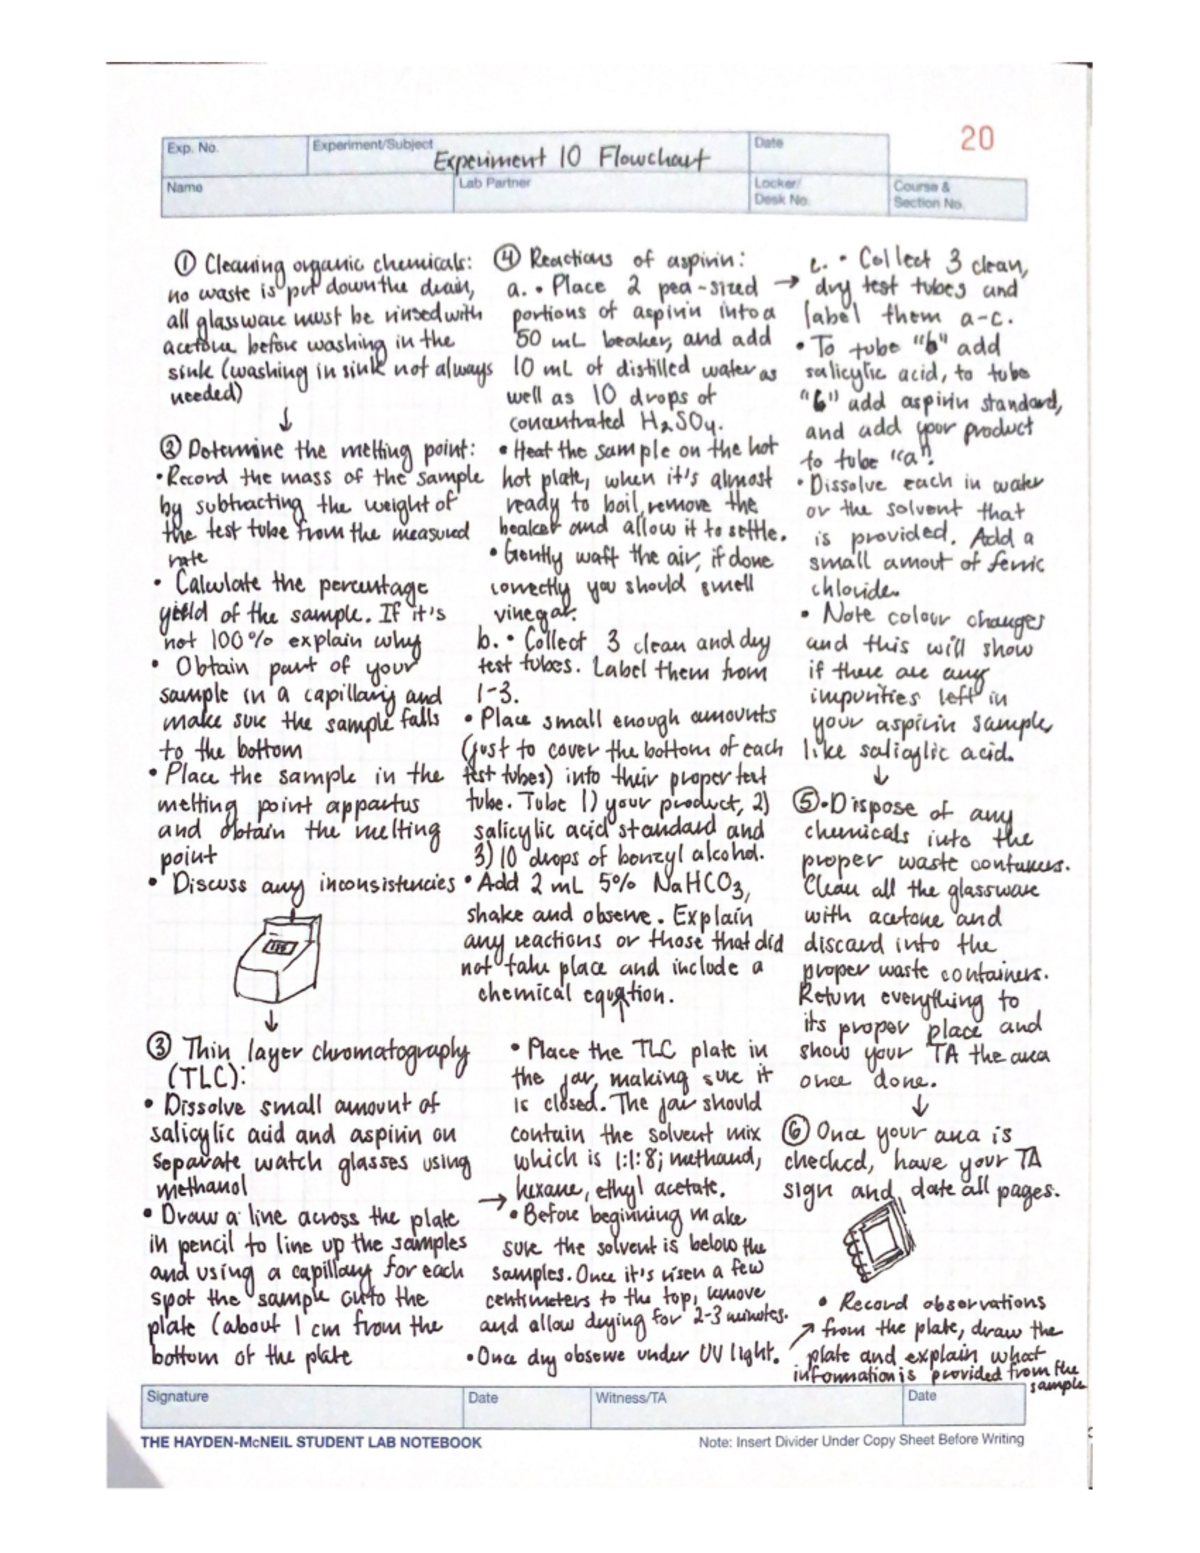 20
Exp. No.
Experiment/Subject
Experiment 10 Flowchart
Date
Name
Lab Partner
Locker/
Desk No.
Course &
Section No.
① Cleaning organic chemicals:
no waste is put down the drain,
all glassware must be rinsed with
acetone before washing in the
sink (washing in sink not always
needed)
↓
② Determine the melting point:
• Record the mass of the sample
by subtracting the weight of
the test tube from the measured
rate
• Calculate the percentage
yield of the sample. If it's
not 100% explain why
• Obtain part of your
sample in a capillary and
make sure the sample falls
to the bottom
• Place the sample in the
melting point appartus
and obtain the melting
point
• Discuss any inconsistencies
↓
③ Thin layer chromatography
(TLC):
• Dissolve small amount of
salicylic acid and aspirin on
separate watch glasses using
methanol
• Draw a line across the plate
in pencil to line up the samples
and using a capillary for each
spot the sample onto the
plate (about 1 cm from the
bottom of the plate
④ Reactions of aspirin:
a. • Place 2 pea-sized
portions of aspirin into a
50 mL beaker, and add
10 mL of distilled water as
well as 10 drops of
concentrated H₂SO₄.
• Heat the sample on the hot
hot plate, when it's almost
ready to boil, remove the
beaker and allow it to settle.
• Gently waft the air, if done
correctly you should smell
vinegar.
b. • Collect 3 clean and dry
test tubes. Label them from
1-3.
• Place small enough amounts
(just to cover the bottom of each
test tubes) into their proper test
tube. Tube 1) your product, 2)
salicylic acid standard and
3) 10 drops of benzyl alcohol.
• Add 2 mL 5% NaHCO₃,
shake and observe. Explain
any reactions or those that did
not take place and include a
chemical equation.
• Place the TLC plate in
the jar, making sure it
is closed. The jar should
contain the solvent mix
which is 1:1:8; methanol,
→ hexane, ethyl acetate.
• Before beginning make
sure the solvent is below the
samples. Once it's risen a few
centimeters to the top, remove
and allow drying for 2-3 minutes.
• Once dry observe under UV light.
c. • Collect 3 clean,
→ dry test tubes and
label them a-c.
• To tube "b" add
salicylic acid, to tube
"b" add aspirin standard,
and add your product
to tube "a".
• Dissolve each in water
or the solvent that
is provided. Add a
small amout of ferric
chloride.
• Note colour changes
and this will show
if there are any
impurities left in
your aspirin sample,
like salicylic acid.
↓
⑤ • Dispose of any
chemicals into the
proper waste containers.
Clean all the glassware
with acetone and
discard into the
proper waste containers.
Return everything to
its proper place and
show your TA the area
once done.
↓
⑥ Once your area is
checked, have your TA
sign and date all pages.
• Record observations
↗ from the plate, draw the
plate and explain what
information is provided from the
sample
Signature
Date
Witness/TA
Date
THE HAYDEN-McNEIL STUDENT LAB NOTEBOOK
Note: Insert Divider Under Copy Sheet Before Writing